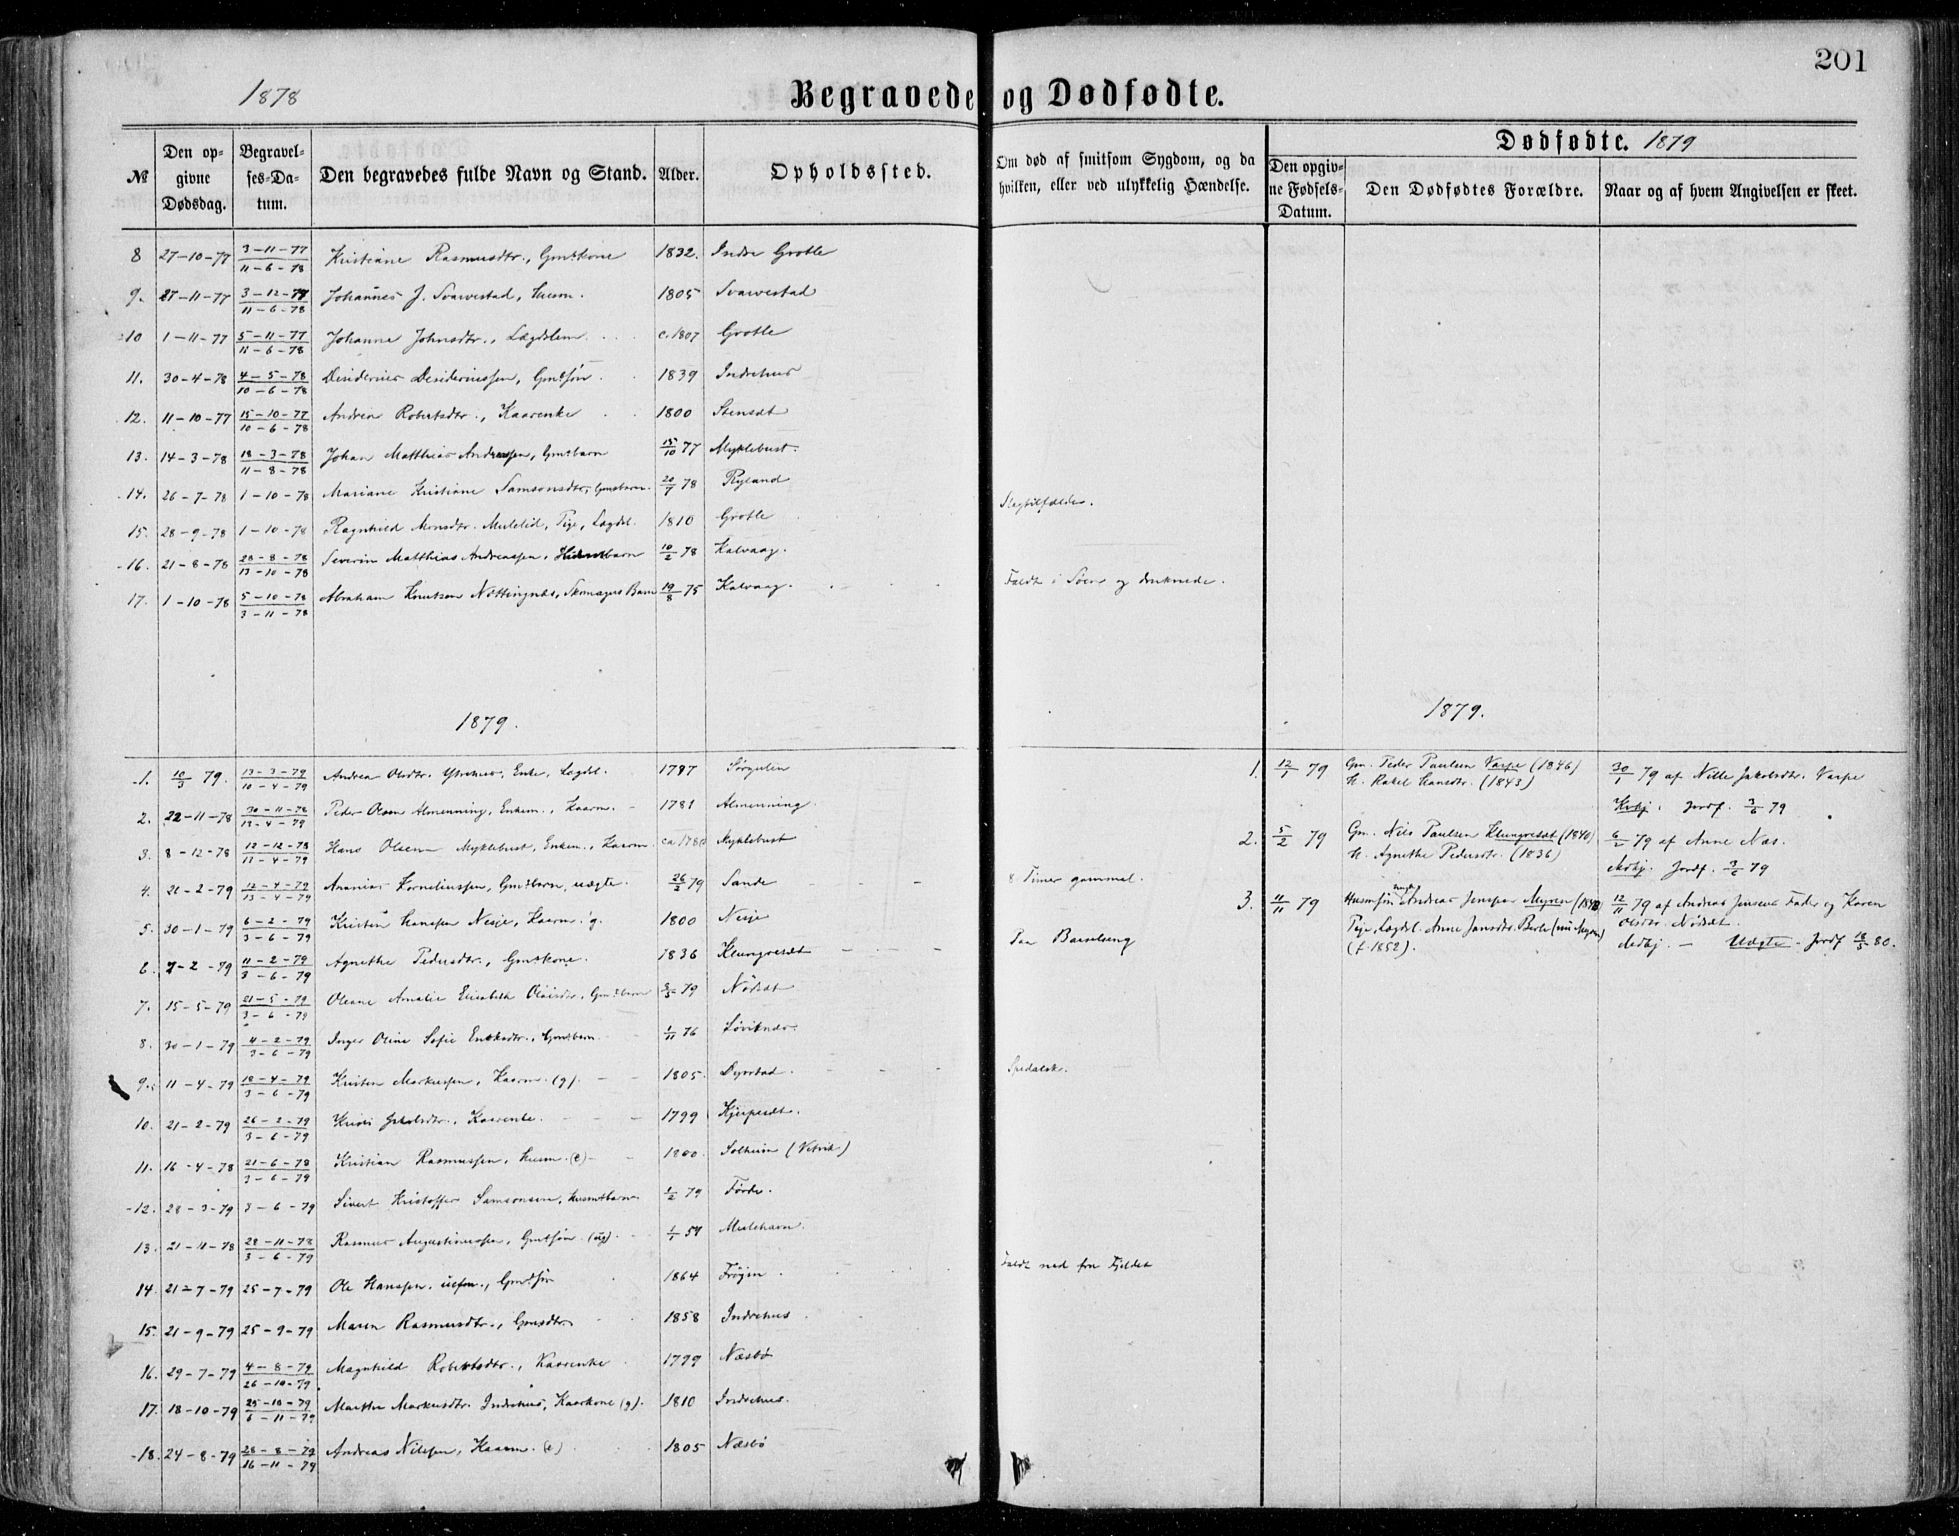 201
1878
Begravede og Dødfødte.
Dødfødte. 1879
№ Den opgivne Dødsdag. Begravelses-Datum. Den begravedes fulde Navn og Stand. Alder. Opholdssted. Om død af smitsom Sygdom, og da hvilken, eller ved ulykkelig Hændelse. Den opgivne Fødsels-Datum. Den Dødfødtes Forældre. Naar og af hvem Angivelsen er skeet.
8 27-10-77 3-11-77 / 11-6-78 Kristiane Rasmusdtr., Gmdskone 1832. Indre Grotle
9. 27-11-77 3-12-77 / 11-6-78 Johannes J. Svarvestad, Husm. 1805 Svarvestad
10 1-11-77 5-11-77 / 11-6-78 Johanne Johnsdtr., Lægdslem c. 1807 Grotle
11. 30-4-78 4-5-78 / 10-6-78 Desiderius Desideriussen, Gmdsøn 1839 Indrehus
12. 11-10-77 15-10-77 / 10-6-78 Andrea Robertsdtr., Kaarenke 1800 Stensæt
13. 14-3-78 18-3-78 / 11-8-78 Johan Matthias Andreassen, Gmdsbarn 15/10 77 Myklebust.
14. 26-7-78 1-10-78 Mariane Kristiane Samsonsdtr, Gmdsbarn. 20/7 78 Ryland
15. 28-9-78 1-10-78 Ragnhild Monsdtr. Mulelid, Pige, Lægdsl. 1810 Grotle Slagtilfælde.
16. 21-8-78 28-8-78 / 13-10-78 Severin Matthias Andreassen, barn 10/2 78 Kalvaag.
17. 1-10-78 5-10-78 / 3-11-78 Abraham Knutsen Nøttingnes, Skomagers Barn 19/8 75 Kalvaag. Faldt i Søen og druknede.
1879. 1879.
1. 10/3 79. 13-3-79 / 10-4-79 Andrea Olsdtr. Ytrehus, Enke, Lægdsl. 1797 Sørgulen
2. 22-11-78 30-11-78 / 13-4-79 Peder Olsen Almenning, Enkem., Kaarm. 1781 Almenning
3. 8-12-78 12-12-78 / 13-4-79 Hans Olsen Myklebust, Enkem., Kaarm. ca 1780 Myklebust
4. 26-2-79 12-4-79 / 13-4-79 Ananias Korneliussen, Gmdsbarn, uægte. 26/2 79 Sande 8 Timer gammel.
5. 30-1-79 6-2-79 / 3-6-79 Kristen Hansen Nesje, Kaarm. g. 1800 Nesje
6. 7-2-79 11-2-79 / 3-6-79 Agnethe Pedersdtr., Gmdskone. 1836 Klungresæt Paa Barselseng
7. 15-5-79 21-5-79 / 3-6-79 Oleane Amalie Elisabeth Olaisdtr, Gmdsbarn 3/5 79 Nødsæt
8. 30-1-79 4-2-79 / 3-6-79 Inger Oline Sofie dtr., Gmdsbarn 1/11 76 Løviknes.
9. 11-4-79 18-4-79 / 3-6-79 Kristen Markussen, Kaarm. (g). 1805. Dyrstad Spedalsk.
10. 21-2-79 26-2-79 / 3-6-79 Kristi Jakobsdtr., Kaarenke. 1799 Kjerpesæt.
11. 16-4-78 21-6-78 / 3-6-79 Kristian Rasmussen, Husm. (e) 1800. Solheim (Vetvik)
12. 28-3-79 3-6-79 Sivert Kristoffer Samsonsen, Husmdsbarn. 1/2 79 Førde.
13. 21-11-78 28-11-78 / 3-6-79 Rasmus Augustinussen, Gmdsøn (ug). 1/1 54 Mulehavn
14. 21-7-79 25-7-79 Ole Hansen, Gmdsøn 1864 Frøien Faldt ned fra Fjeldet
15. 21-9-79 25-9-79 Maren Rasmusdtr., Gmdsdtr. 1858 Indrehus
16. 29-7-79 4-8-79 / 26-10-79 Magnhild Robertsdtr., Kaarenke 1799 Næsbø
17. 18-10-79 25-10-79 / 6-11-79 Marthe Markusdtr. Indrehus, Kaarkone (g). 1810 Indrehus.
18. 24-8-79 28-8-79 / 16-11-79 Andreas Nilssen, Kaarm. (e) 1805 Næsbø
1. 12/1 79 Gm. Peder Paulsen Varpe (1846) 30/1 79 af Nille Jakobsdtr. Varpe
H. Rakel Hansdtr. (1843)
Jordf. 3/6 79
2. 5/2 79 Gm. Nils Paulsen Klungresæt (1840) 6/2 79 af Anne Næs.
H. Agnethe Pedersdtr. (1836) Medhj. Jordf. 3/6 79
3. 11/11 79 Husmsøn ungk. Andreas Jensen Myren 12/11 79 af Andreas Jensens Fader og Karen
Pige Lægdsl. Anne Jansdtr. Berle (nu Myren) Olsdtr. Nødsæt
(f. 1852). Medhj. — Uægte. Jordf 18/5 80.